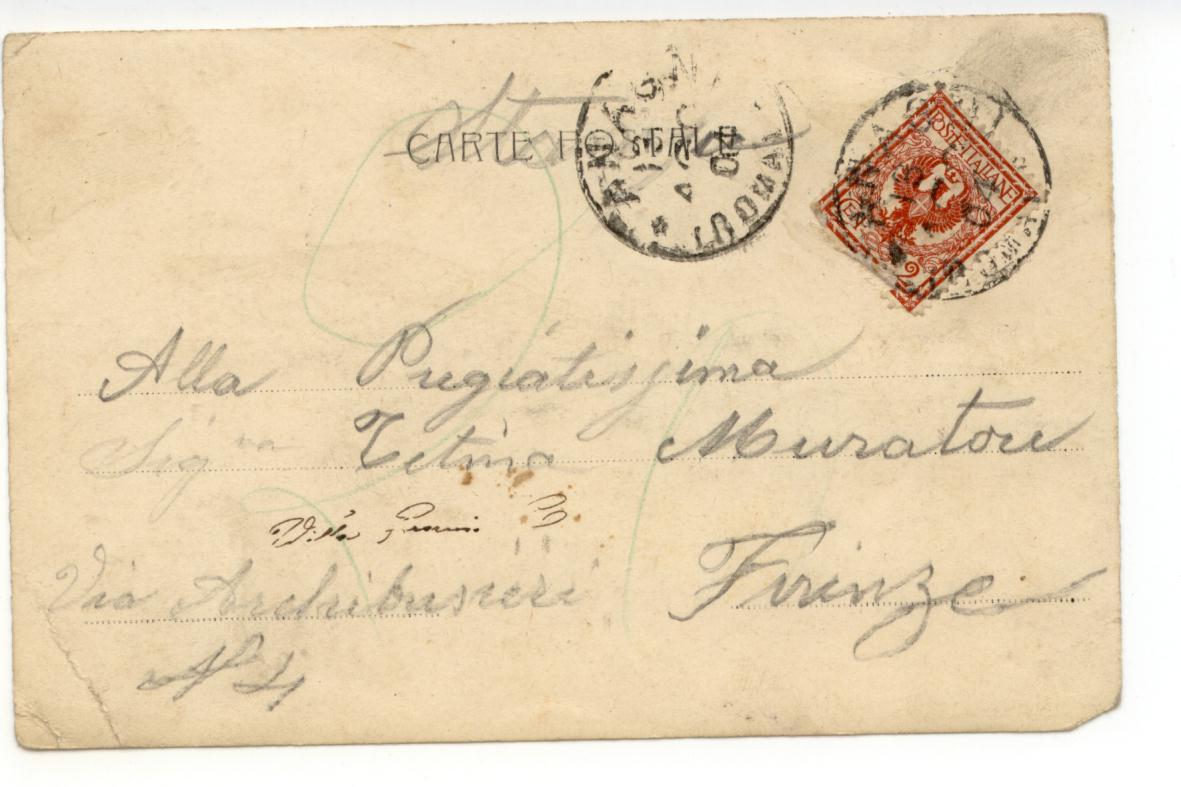 CARTE POSTALE
Stampe
POSTE ITALIANE
CEN 2
Alla Pregiatissima
Sig.na Tetina Muratori
Villa
Via Archibusieri Firenze
N° 4